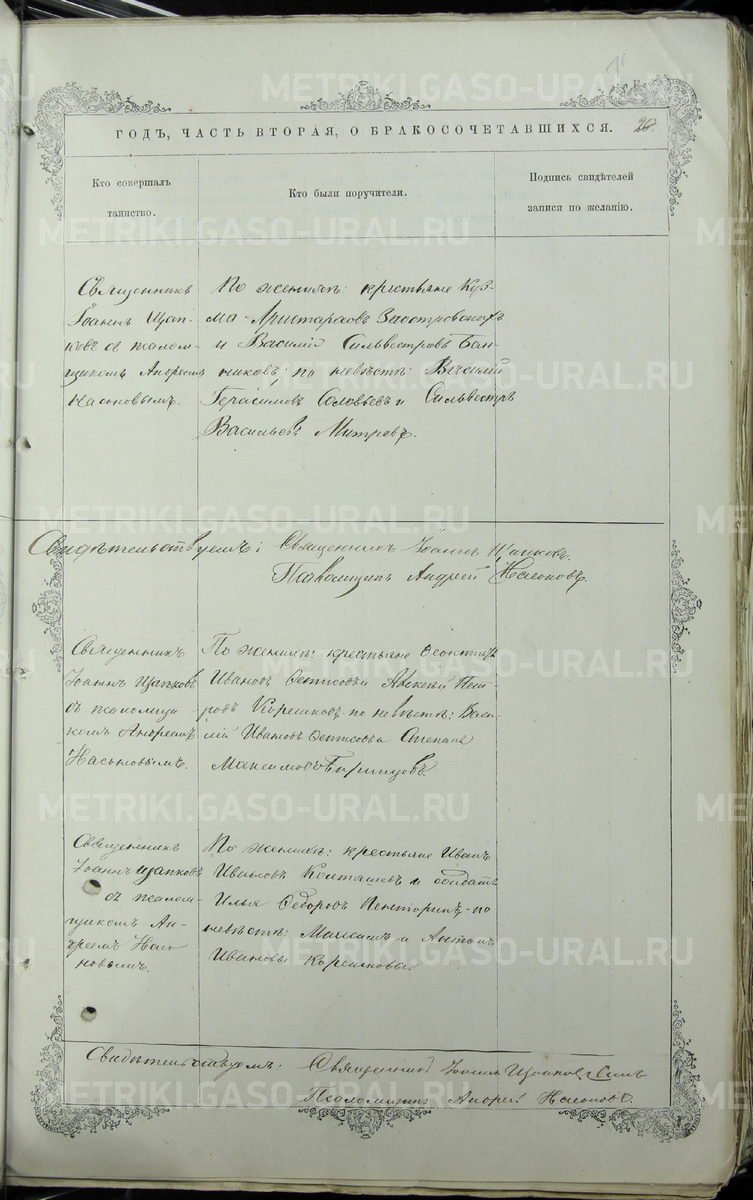 METRIKI.GASO-URAL.RU
ГОДЪ, ЧАСТЬ ВТОРАЯ, О БРАКОСОЧЕТАВШИХСЯ. 20.
Кто совершалъ
таинство.
Кто были поручители.
Подпись свидѣтелей
записи по желанію.
Священникъ
Іоаннъ Щап-
ковъ съ псалом-
щикомъ Андреемъ
Насоновымъ.
По женихѣ: крестьяне Куз-
ма Аристарховъ Заостровскихъ
и Василій Сильвестровъ Бан-
никовъ; по невѣстѣ: Василій
Герасимовъ Соловьевъ и Сильвестръ
Васильевъ Митревъ.
Свидѣтельствуемъ: Священникъ Іоаннъ Щапковъ.
Псаломщикъ Андрей Насоновъ.
Священникъ
Іоаннъ Щапковъ
съ псаломщи
комъ Андреемъ
Насоновымъ.
По женихѣ: крестьяне
Ивановъ и Алексѣй Пет-
ровъ Корешковъ по невѣстѣ: Васи-
лій Ивановъ Степанъ
Максимовъ
Священникъ
Іоаннъ Щапковъ
съ псалом-
щикомъ Ан-
дреемъ Насо
новымъ.
По женихѣ: крестьяне Иванъ
Ивановъ и солдатъ
Илья Ѳедоровъ по
невѣстѣ: Максимъ и Антонъ
Ивановы Корешковы.
Свидѣтельствуемъ: Священникъ Іоаннъ Щапковъ
Псаломщикъ Андрей Насоновъ.